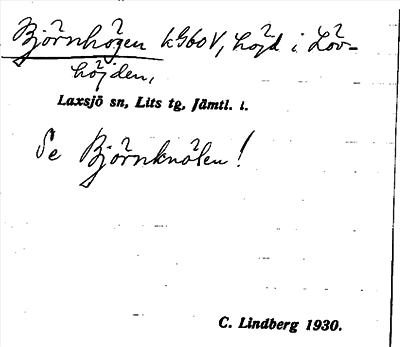 Björnhögen k960V, höjd i Löv-
höjden,
Laxsjö sn, Lits tg, Jämtl. l.
Se Björnknölen!
C. Lindberg 1930.